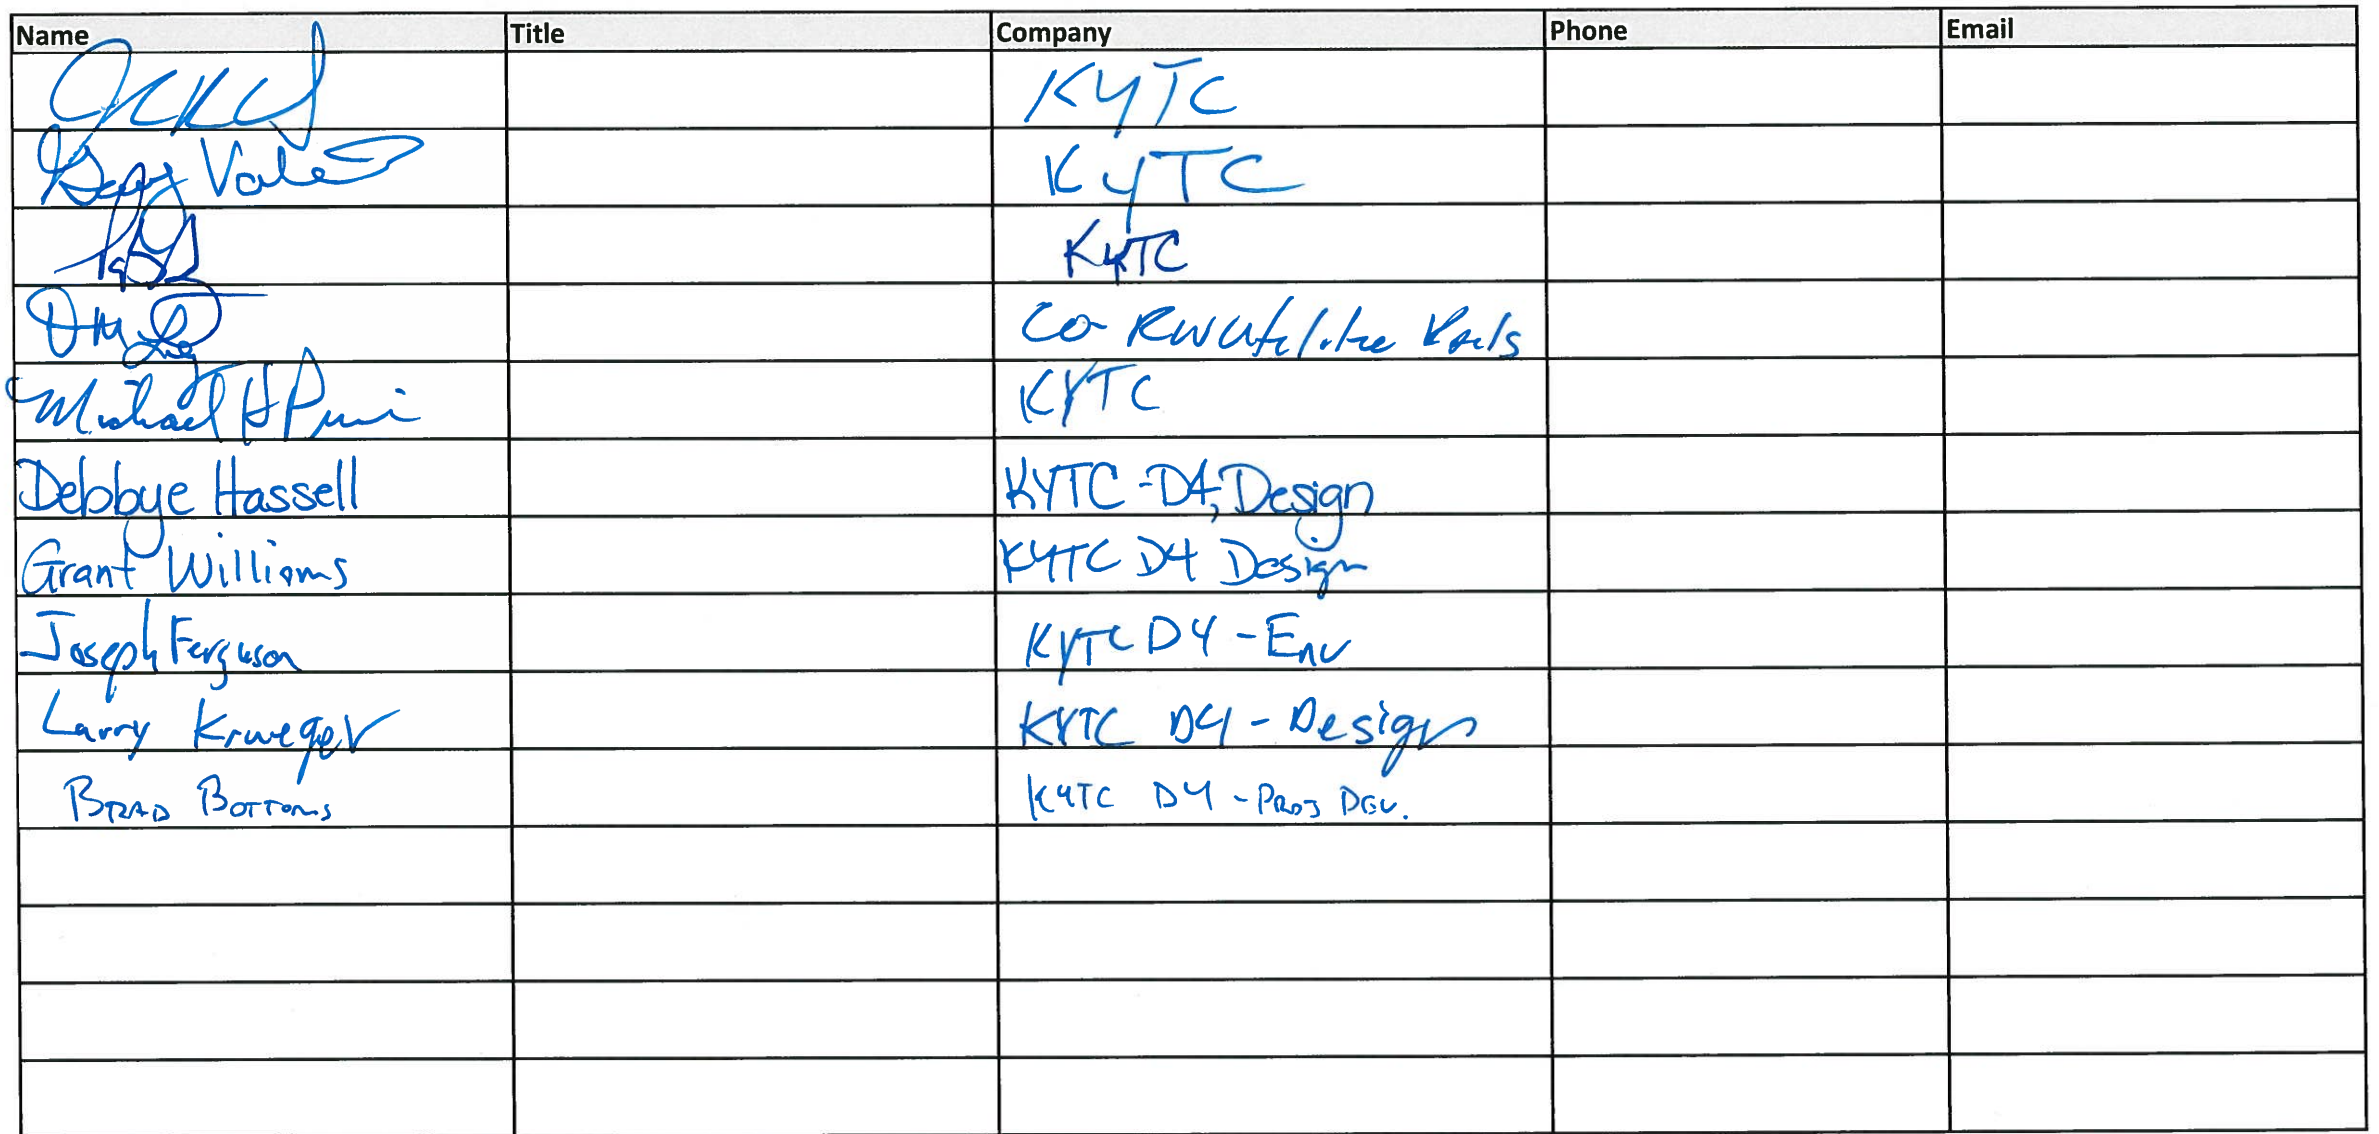 Name Title Company Phone Email
KYTC
Gary Vale KYTC
KYTC
DM Co RW Utilitie Rails
Michael KYTC
Debbye Hassell KYTC-D4, Design
Grant Williams KYTC D4 Design
Joseph Ferguson KYTC D4 - Env
Larry Krueger KYTC D4 - Design
BRAD BOTTOMS KYTC D4 - PROJ DEV.